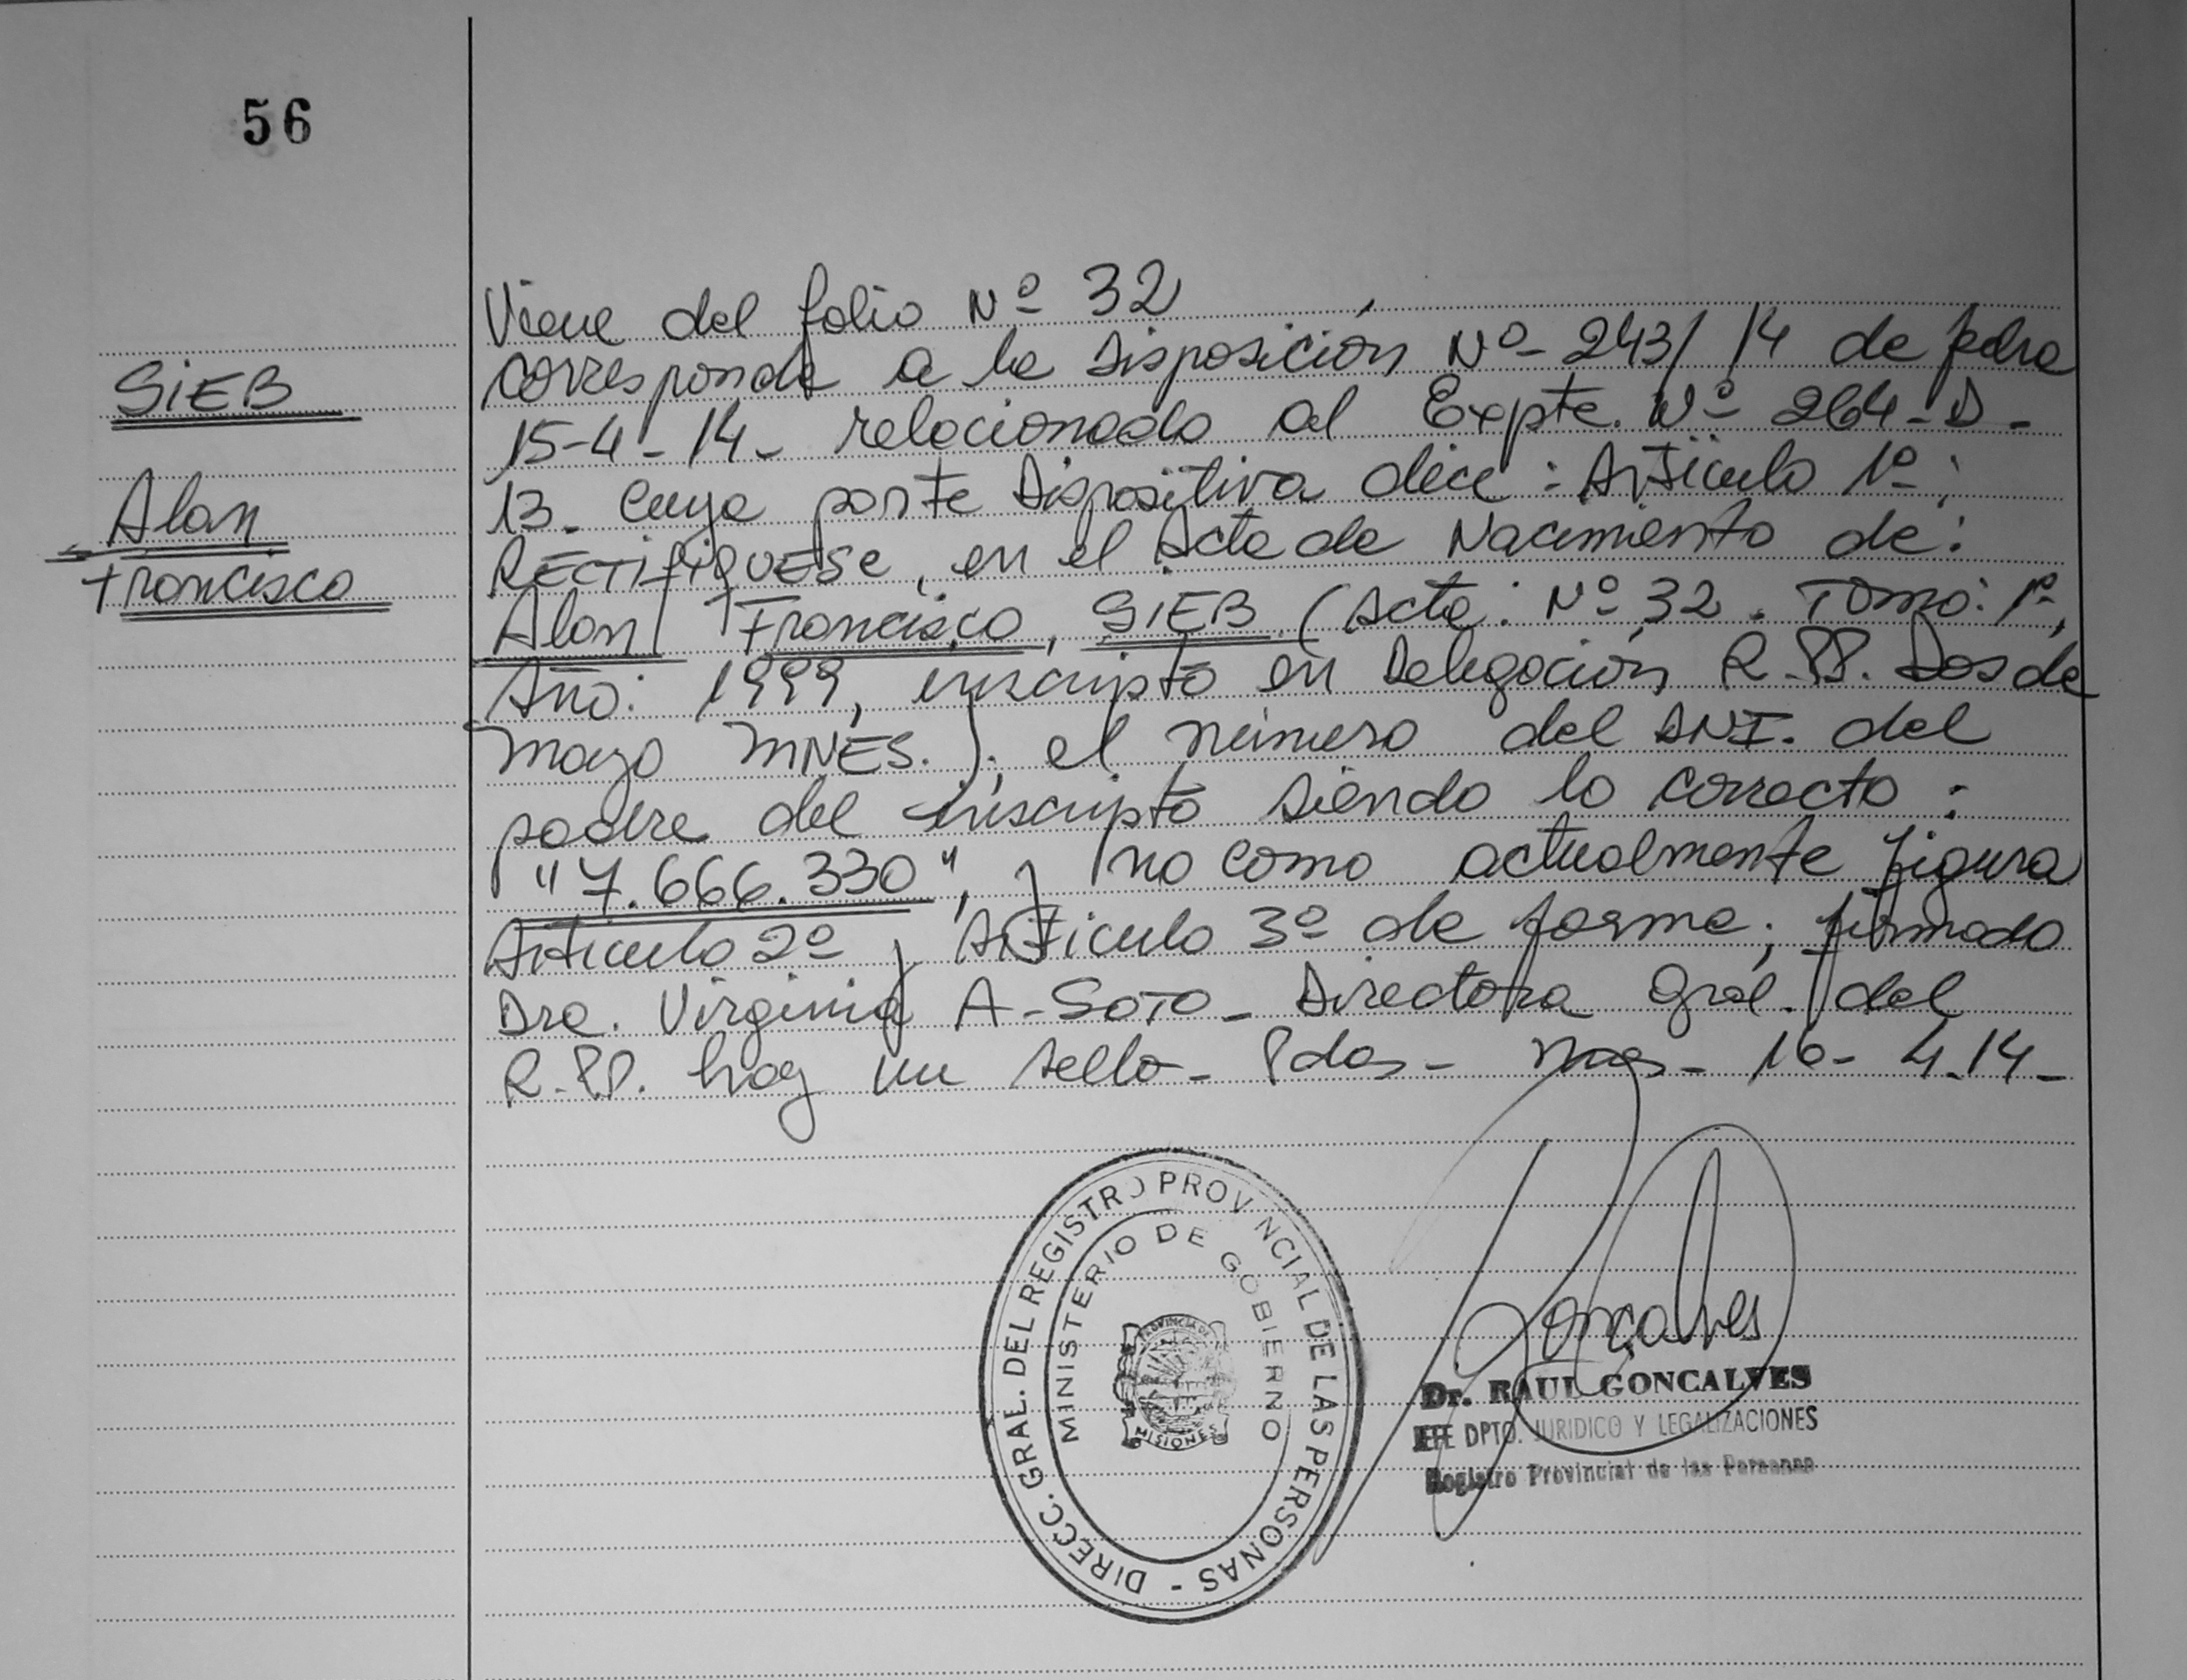 56
SiEB
Alan
Francisco
Viene del folio Nº 32
corresponde a la Disposición Nº 243/14 de fecha
15-4-14- relacionado al Expte. Nº 264-D-
13- cuya parte Dispositiva dice: Artículo 1º:
RECTIFIQUESE, en el Acta de Nacimiento de:
Alan Francisco, SIEB (Acta: Nº 32. Tomo: 1º,
Año: 1999, inscripto en Delegación R.PP. Dos de
Mayo MNES.); el número del DNI. del
padre del inscripto siendo lo correcto:
"7.666.330", y no como actualmente figura
Articulo 2º y Articulo 3º de forma; firmado
Dra. Virginia A-SOTO- Directora Gral. del
R.PP. hay un sello- Pdas- Mnes- 16-4-14-
DIRECC. GRAL. DEL REGISTRO PROVINCIAL DE LAS PERSONAS -
MINISTERIO DE GOBIERNO
PROVINCIA DE
MISIONES
Goncalves
Dr. RAUL GONCALVES
JEFE DPTO. JURIDICO Y LEGALIZACIONES
Registro Provincial de las Personas